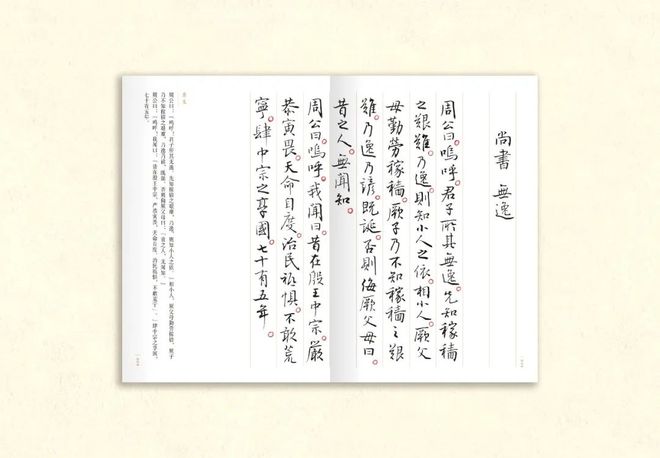 尚書 無逸
周公曰嗚呼君子所其無逸先知稼穡
之艱難乃逸則知小人之依相小人厥父
母勤勞稼穡厥子乃不知稼穡之艱
難乃逸乃諺既誕否則侮厥父母曰
昔之人無聞知
周公曰嗚呼我聞曰昔在殷王中宗嚴
恭寅畏天命自度治民祗懼不敢荒
寧肆中宗之享國七十有五年
原文
周公曰：“呜呼，君子所其无逸。先知稼穑之艰难，乃逸，则知小人之依。相小人，厥父母勤劳稼穑，厥子
乃不知稼穑之艰难，乃逸乃谚。既诞，否则侮厥父母曰：‘昔之人，无闻知。’”
周公曰：“呜呼，我闻曰：‘昔在殷王中宗，严恭寅畏，天命自度，治民祗惧，不敢荒宁。’肆中宗之享国，
七十有五年。